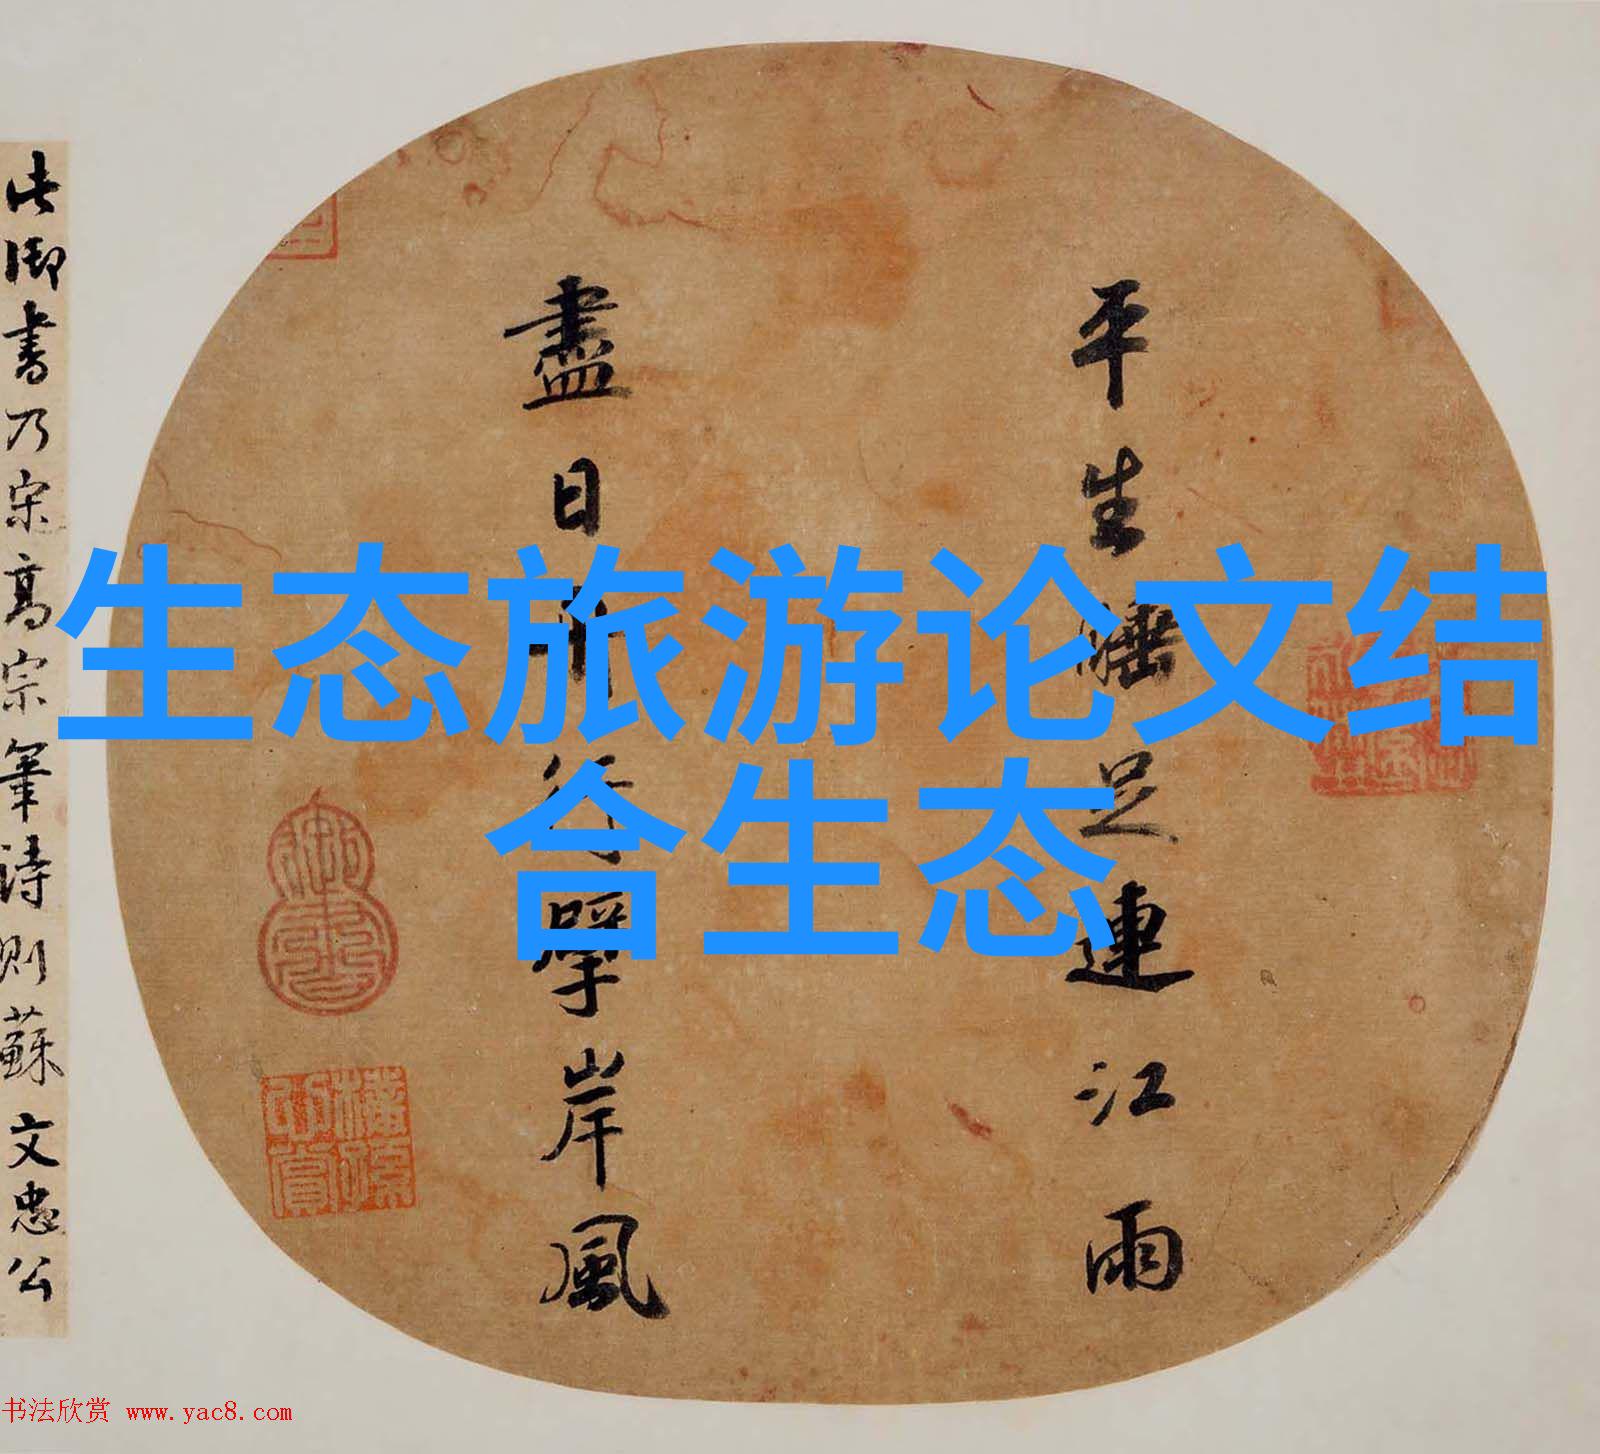 平生睡足連江雨
盡日舟行擘岸風
此御書乃宋高宗筆詩則蘇文忠公
生态旅游论文结
合生态
书法欣赏 www.yac8.com